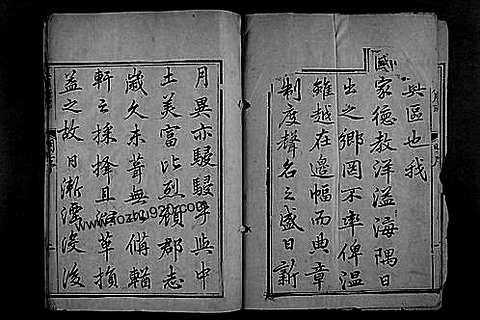 與區也我
國家德教洋溢海隅日
出之鄉罔不率俾溫
雖越在邊幅而典章
制度聲名之盛日新
月異亦駸駸乎與中
土美富比烈顧郡志
歲久未葺無備輶
軒之採擇且沿革損
益之故日漸湮沒後